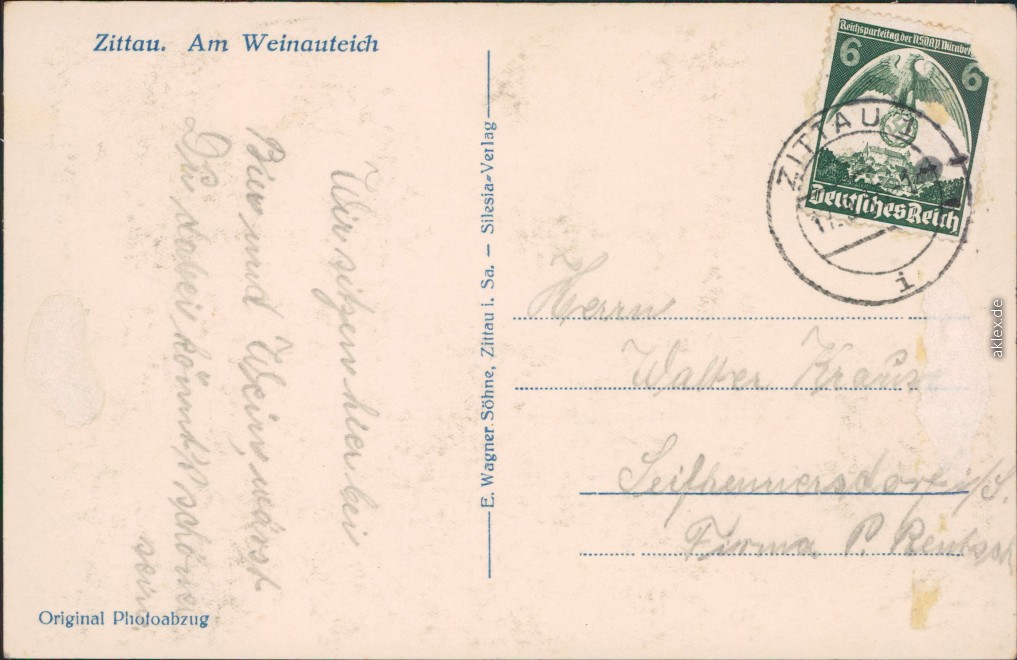 Zittau. Am Weinauteich
Wir sitzen hier bei
Bier und Wein, wärst
Du dabei könnt's schöner
sein.
Original Photoabzug
E. Wagner Söhne, Zittau i. Sa. – Silesia-Verlag
Reichsparteitag der NSDAP. Nürnberg
6 6
Deutsches Reich
ZITTAU 1
i
Herrn
Walter Kraus
Seifhennersdorf i/S.
Firma P. Rentsch
aklex.de